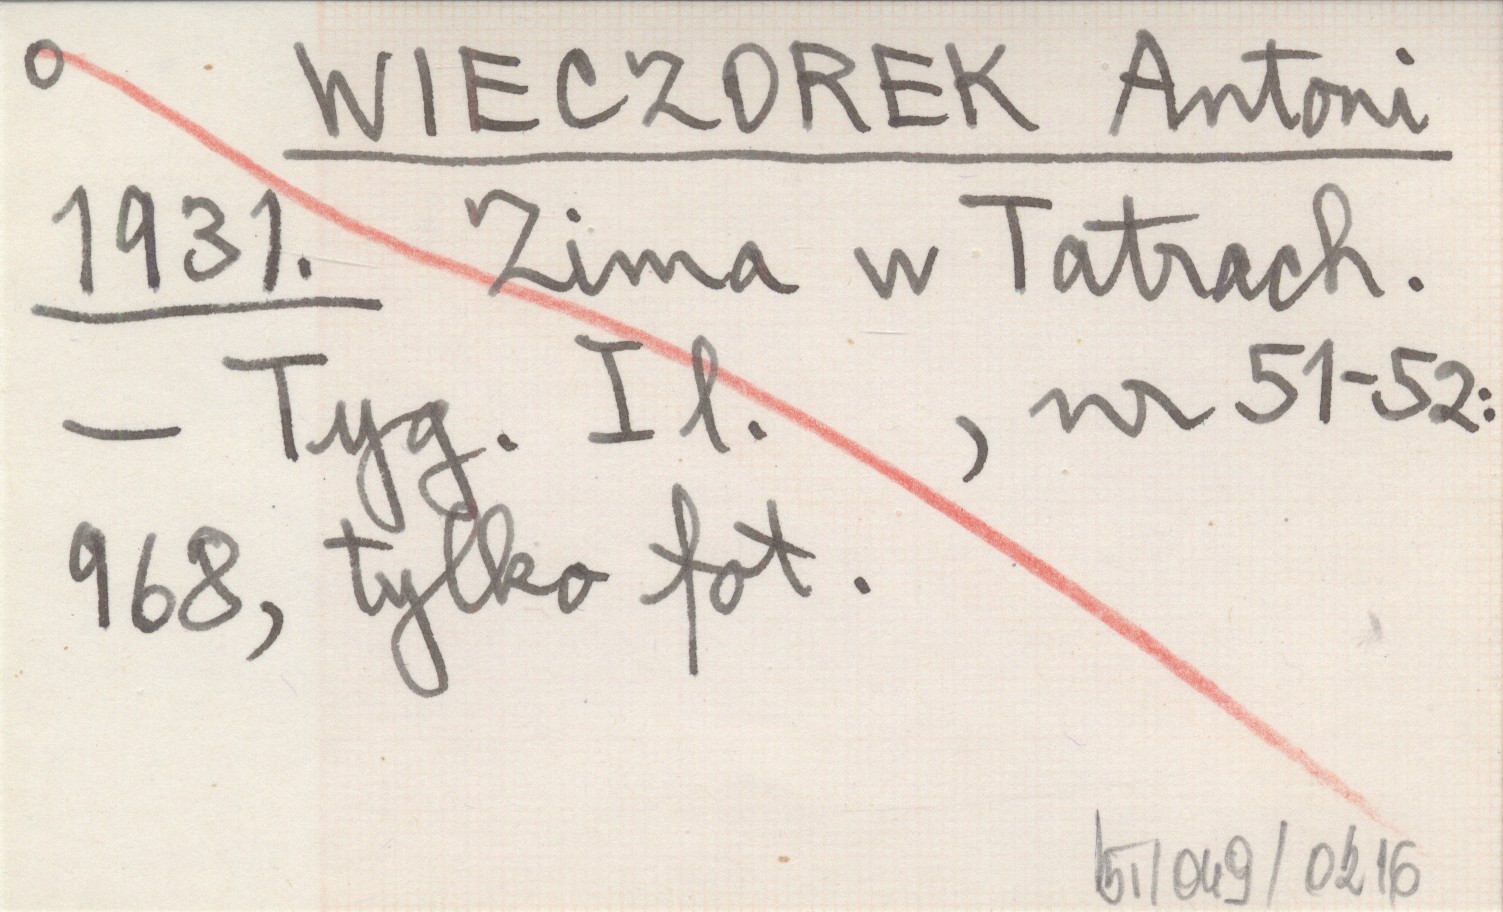 o WIECZOREK Antoni
1931. Zima w Tatrach.
— Tyg. Il. , nr 51-52:
968, tylko fot.
/049/0216